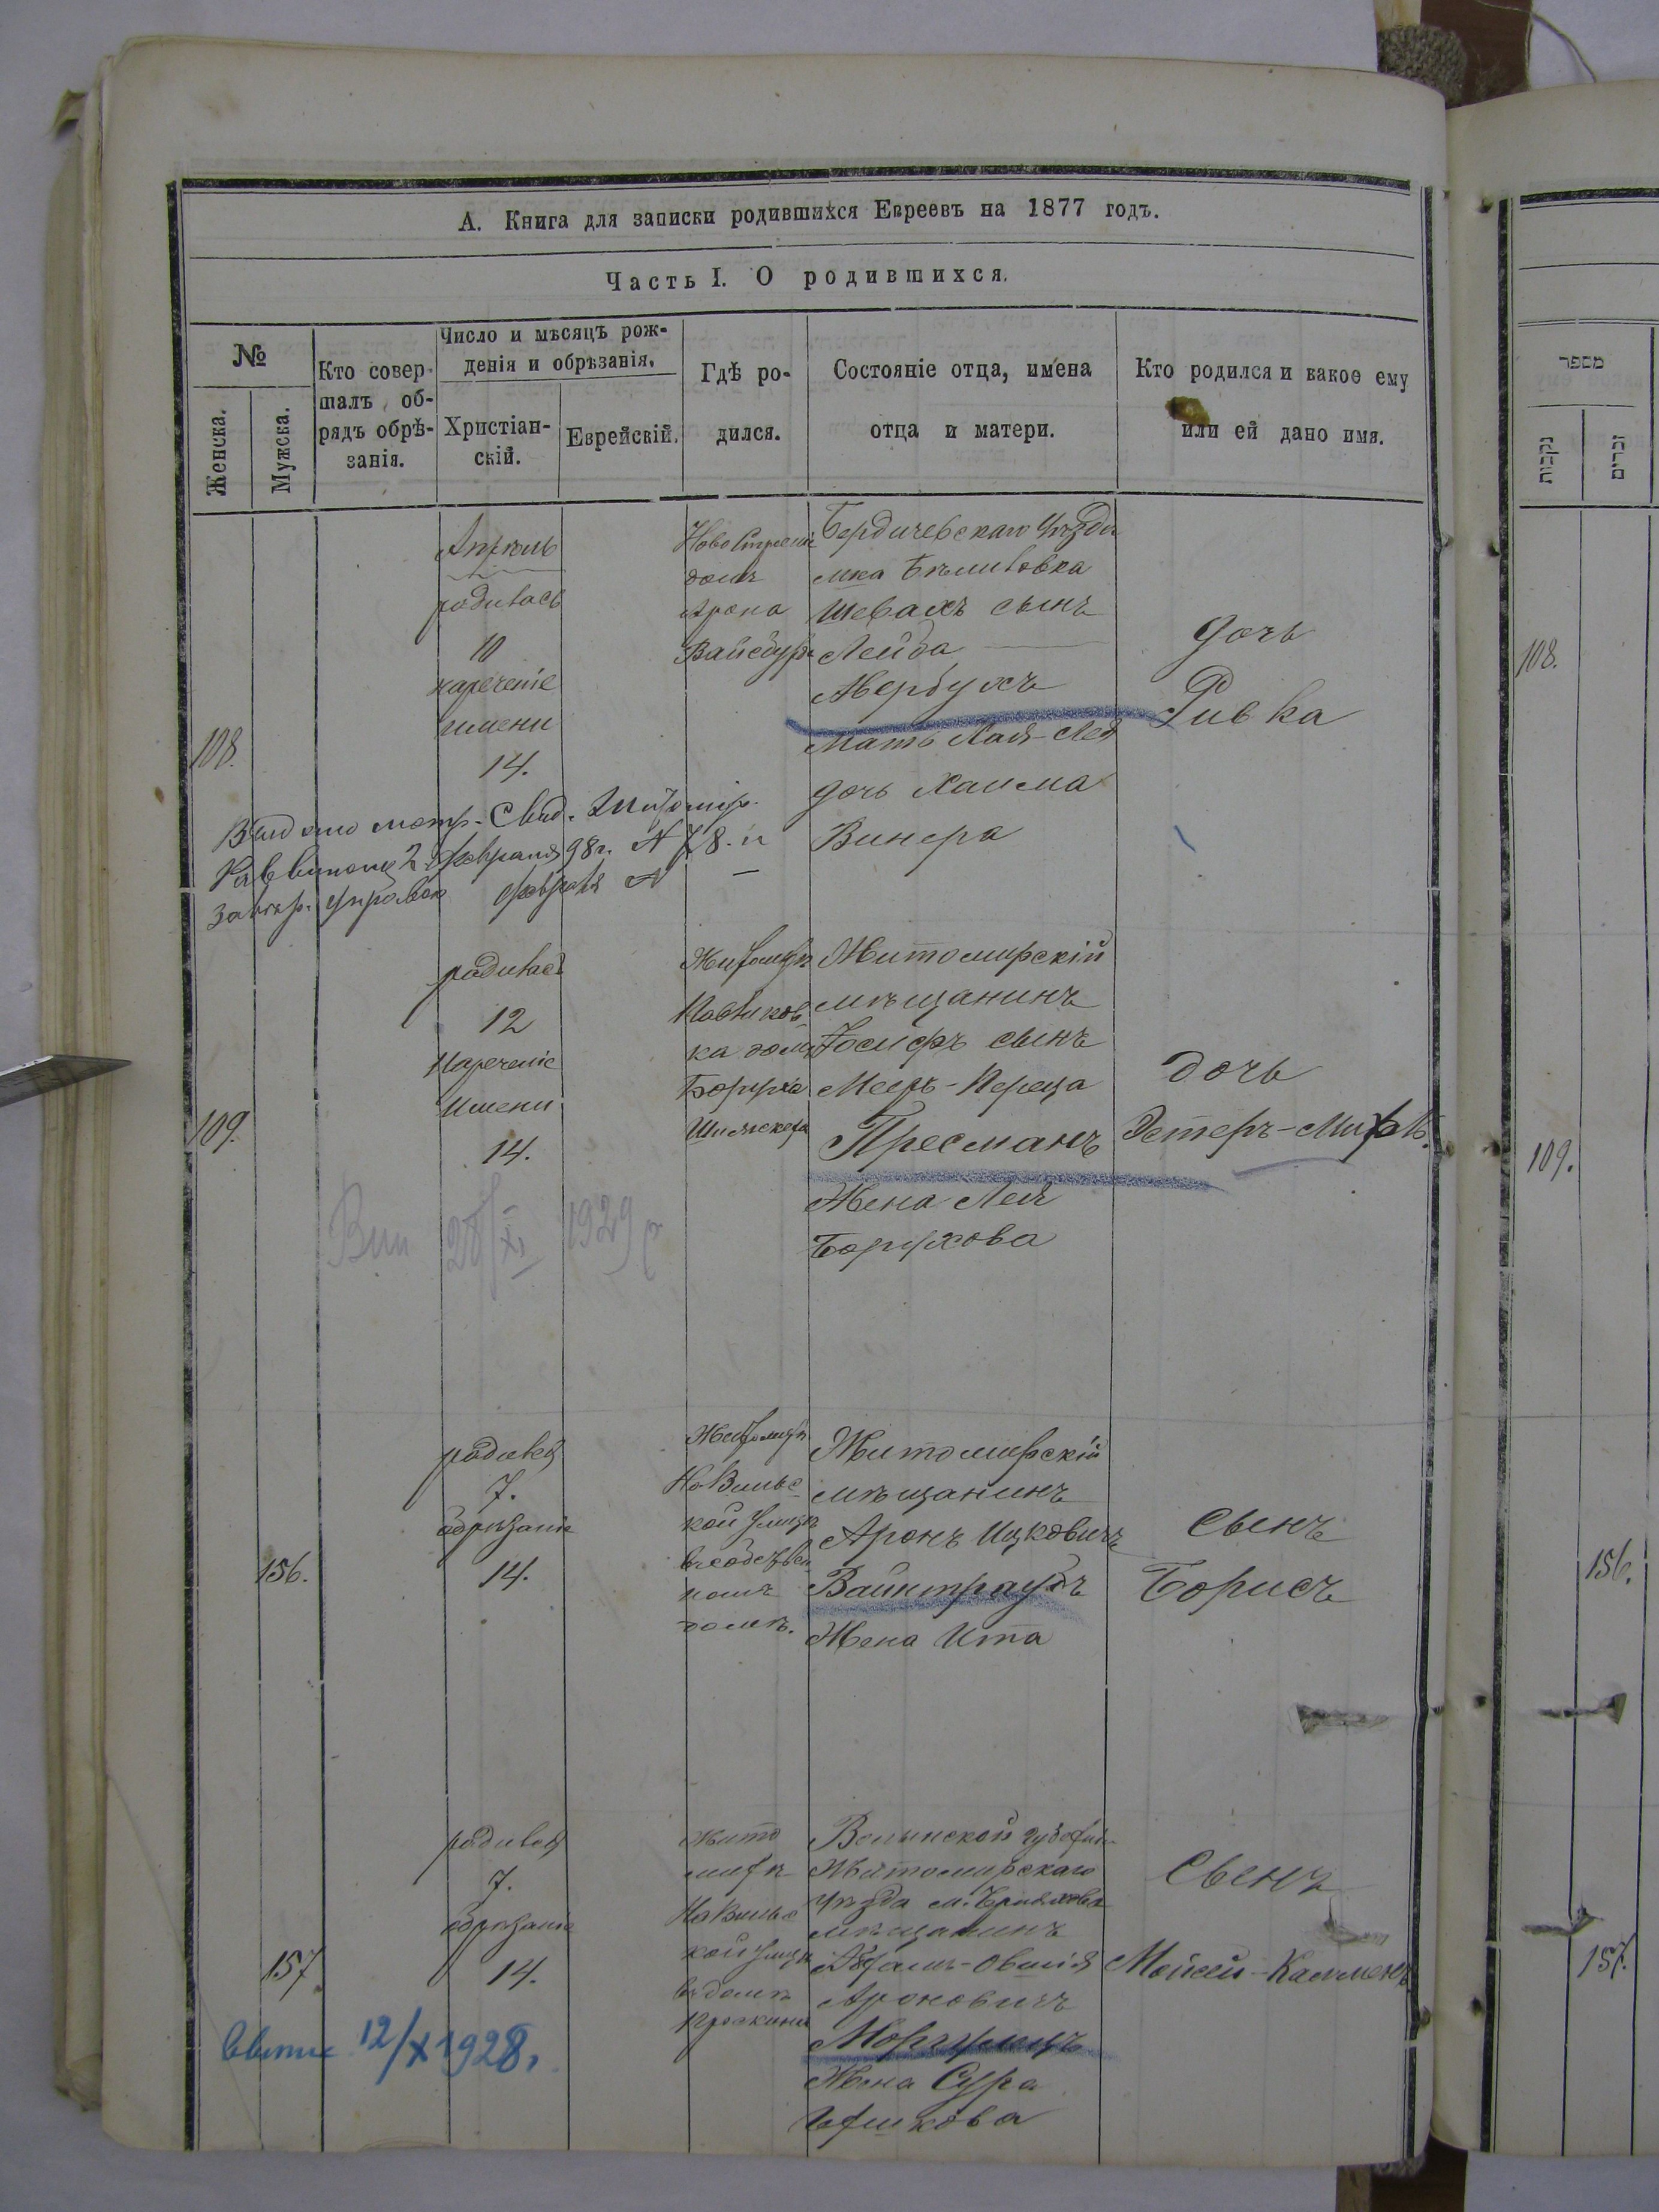 А. Книга для записки родившихся Евреевъ на 1877 годъ.
Часть I. О родившихся.
№
Женска.
Мужска.
Кто совер-
шалъ об-
рядъ обрѣ-
занія.
Число и мѣсяцъ рож-
денія и обрѣзанія.
Христіан-
скій.
Еврейскій.
Гдѣ ро-
дился.
Состояніе отца, имена
отца и матери.
Кто родился и какое ему
или ей дано имя.
108.
Апрѣль
родилась
10
нареченіе
имени
14.
домъ
Арона
Бердичевскаго Уѣзда
мка Бѣлиловка
Шевахъ сынъ
Лейба
Авербухъ
Мать Хая-Лея
дочь Хаима
Винера
дочь
Ривка
Выдано метр. Свид. Житомір.
Раввиномъ 2 февраля 98 г. № 78. и
завѣр. Управою февраля №
109.
родилась
12
Нареченіе
Имени
14.
Житоміръ
ка домъ
Боруха
Житомирскій
мѣщанинъ
Іосифъ сынъ
Мееръ-Переца
Пресманъ
Жена Лея
Борухова
дочь
Эстеръ-
Вип 28/XI 1929 р
156.
родился
7.
обрѣзаніе
14.
Житоміръ
На Вильс-
кой улицѣ
въ собствен
номъ
домѣ.
Житомирскій
мѣщанинъ
Аронъ Ицковичъ
Вайнтраубъ
Жена Ита
сынъ
Борисъ
157
родился
7.
обрѣзаніе
14.
Жито
мирѣ
На Вильс
кой улицѣ
въ домѣ
Волынской губерніи
Житомирскаго
Уѣзда м.
мѣщанинъ
Абрамъ-Овшія
Ароновичъ
Жена Сура
сынъ
Мойсей-Калменъ
12/X 1928.
מספר
נקבות
זכרים
108.
109.
156.
157.